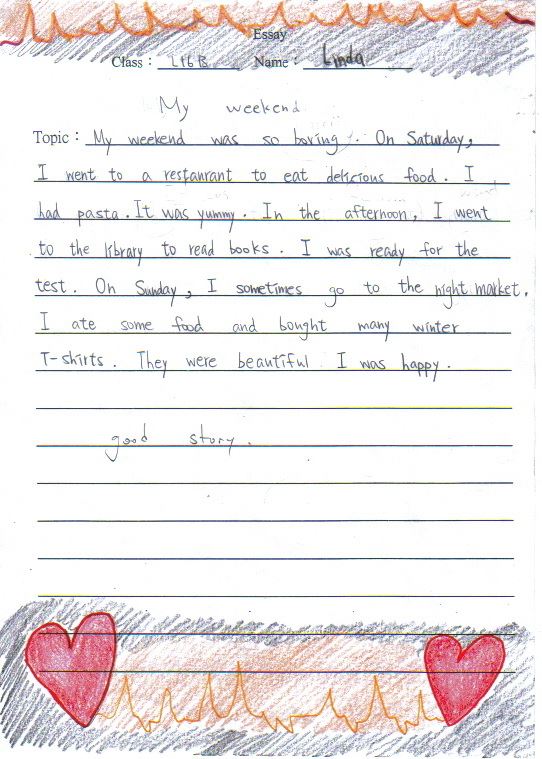 Essay
Class : L16B Name : Linda
My weekend
Topic : My weekend was so boring. On Saturday,
I went to a restanrant to eat delicious food. I
had pasta. It was yummy. In the afternoon, I went
to the library to read books. I was ready for the
test. On Sunday, I sometimes go to the night market.
I ate some food and bought many winter
T-shirts. They were beautiful I was happy.
good story.